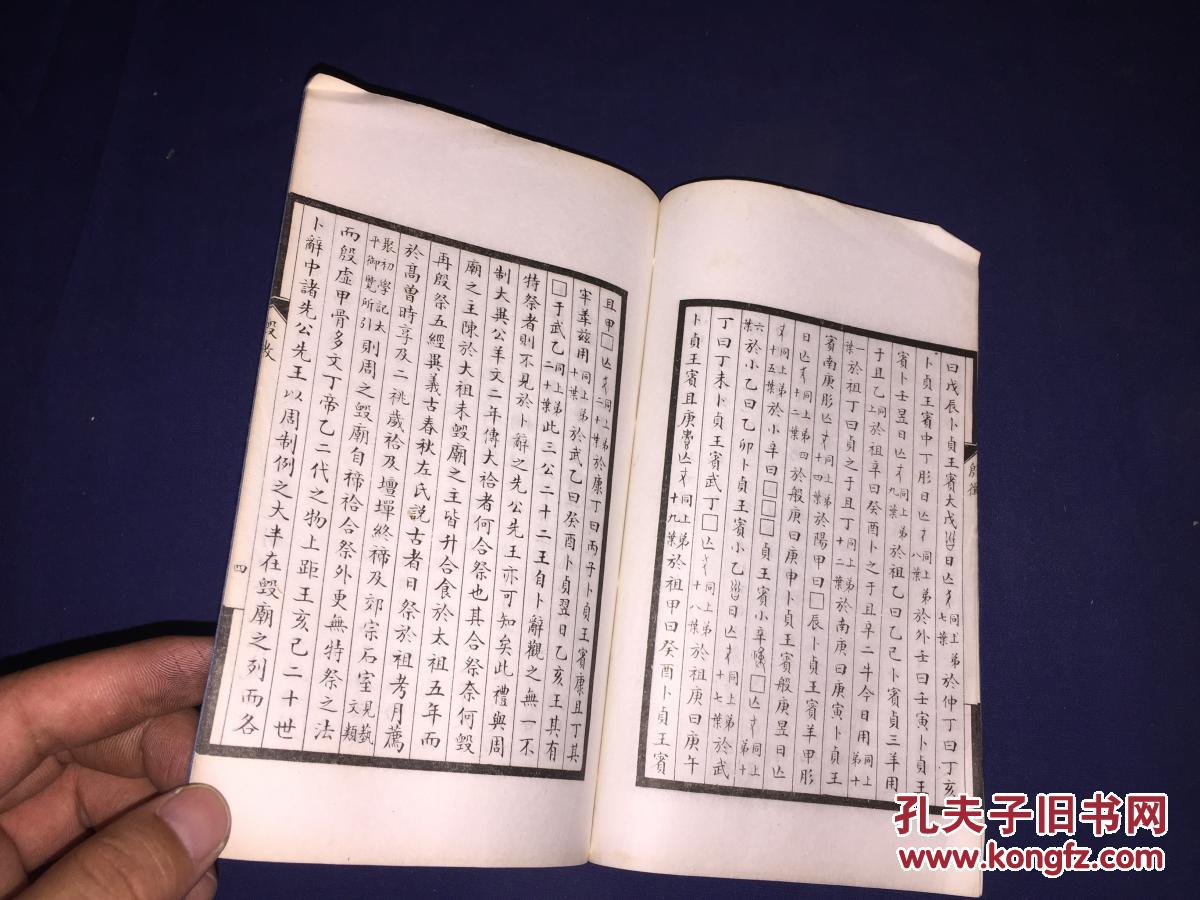 曰戊辰卜貞王賓大戊日亾同上弟七葉於仲丁曰丁亥
卜貞王賓中丁肜日亾同上弟八葉於外壬曰壬寅卜貞王
賓卜壬昱日亾同上弟九葉於祖乙曰乙巳卜賓貞三羊用
于且乙同上於祖辛曰癸酉卜之于且辛二牛今日用同上弟十
一葉於祖丁曰貞之于且丁同上弟十二葉於南庚曰庚寅卜貞王
賓南庚肜亾同上弟十四葉於陽甲曰□辰卜貞王賓羊甲肜
日亾同上弟四十二葉於般庚曰庚申卜貞王賓般庚昱日亾
同上弟十五葉於小辛曰□□□貞王賓小辛□亾同上弟十
六葉於小乙曰乙卯卜貞王賓小乙日亾同上弟十七葉於武
丁曰丁未卜貞王賓武丁□亾同上弟十八葉於祖庚曰庚午
卜貞王賓且庚亾同上弟十九葉於祖甲曰癸酉卜貞王賓
殷
且甲□亾同上弟二十葉於康丁曰丙子卜貞王賓康且丁其
牢茲用同上弟十葉於武乙曰癸酉卜貞翌日乙亥王其有
□于武乙同上弟二十葉此三公二十二王自卜辭觀之無一不
特祭者則不見於卜辭之先公先王亦可知矣此禮與周
制大異公羊文二年傳大祫者何合祭也其合祭奈何毀
廟之主陳於大祖未毀廟之主皆升合食於太祖五年而
再殷祭五經異義古春秋左氏說古者日祭於祖考月薦
於高曾時享及二祧歲祫及壇墠終禘及郊宗石室見藝文類
聚初學記太平御覽所引則周之毀廟自禘祫合祭外更無特祭之法
而殷虛甲骨多文丁帝乙二代之物上距王亥己二十世
卜辭中諸先公先王以周制例之大半在毀廟之列而各
四
孔夫子旧书网
www.kongfz.com